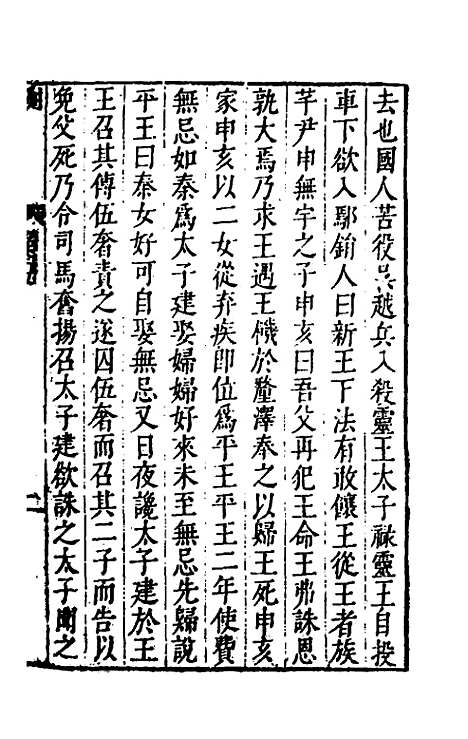 去也國人苦役吳越兵入殺靈王太子祿靈王自投
車下欲入鄢鋗人曰新王下法有敢饟王從王者族
芊尹申無宇之子申亥曰吾父再犯王命王弗誅恩
孰大焉乃求王遇王饑於釐澤奉之以歸王死申亥
家申亥以二女從弃疾即位爲平王平王二年使費
無忌如秦爲太子建娶婦婦好來未至無忌先歸說
平王曰秦女好可自娶無忌又日夜讒太子建於王
王召其傅伍奢責之遂囚伍奢而召其二子而告以
免父死乃令司馬奮揚召太子建欲誅之太子聞之